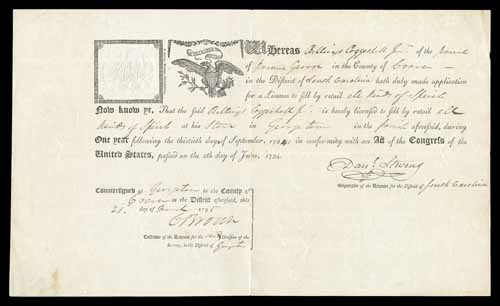 Whereas Billings Coggeshall Junr of the parish
of Prince George in the County of
in the District of South Carolina hath duly made application
for a License to sell by retail all kinds of Spirit
Now know ye, That the said Billings Coggeshall Jr is hereby licensed to sell by retail all
kinds of Spirit at his Store in Georgetown in the parish aforesaid, during
One year following the thirtieth day of September, 1794 in conformity with an Act of the Congress of the
United States, passed on the 5th day of June, 1794.
Danl. Stevens
Supervisor of the Revenue for the District of South Carolina
Countersigned at Georgetown in the County of
in the District aforesaid, this
21 day of March 1795
Collector of the Revenue for the Division of the
Survey, in the District of Georgetown